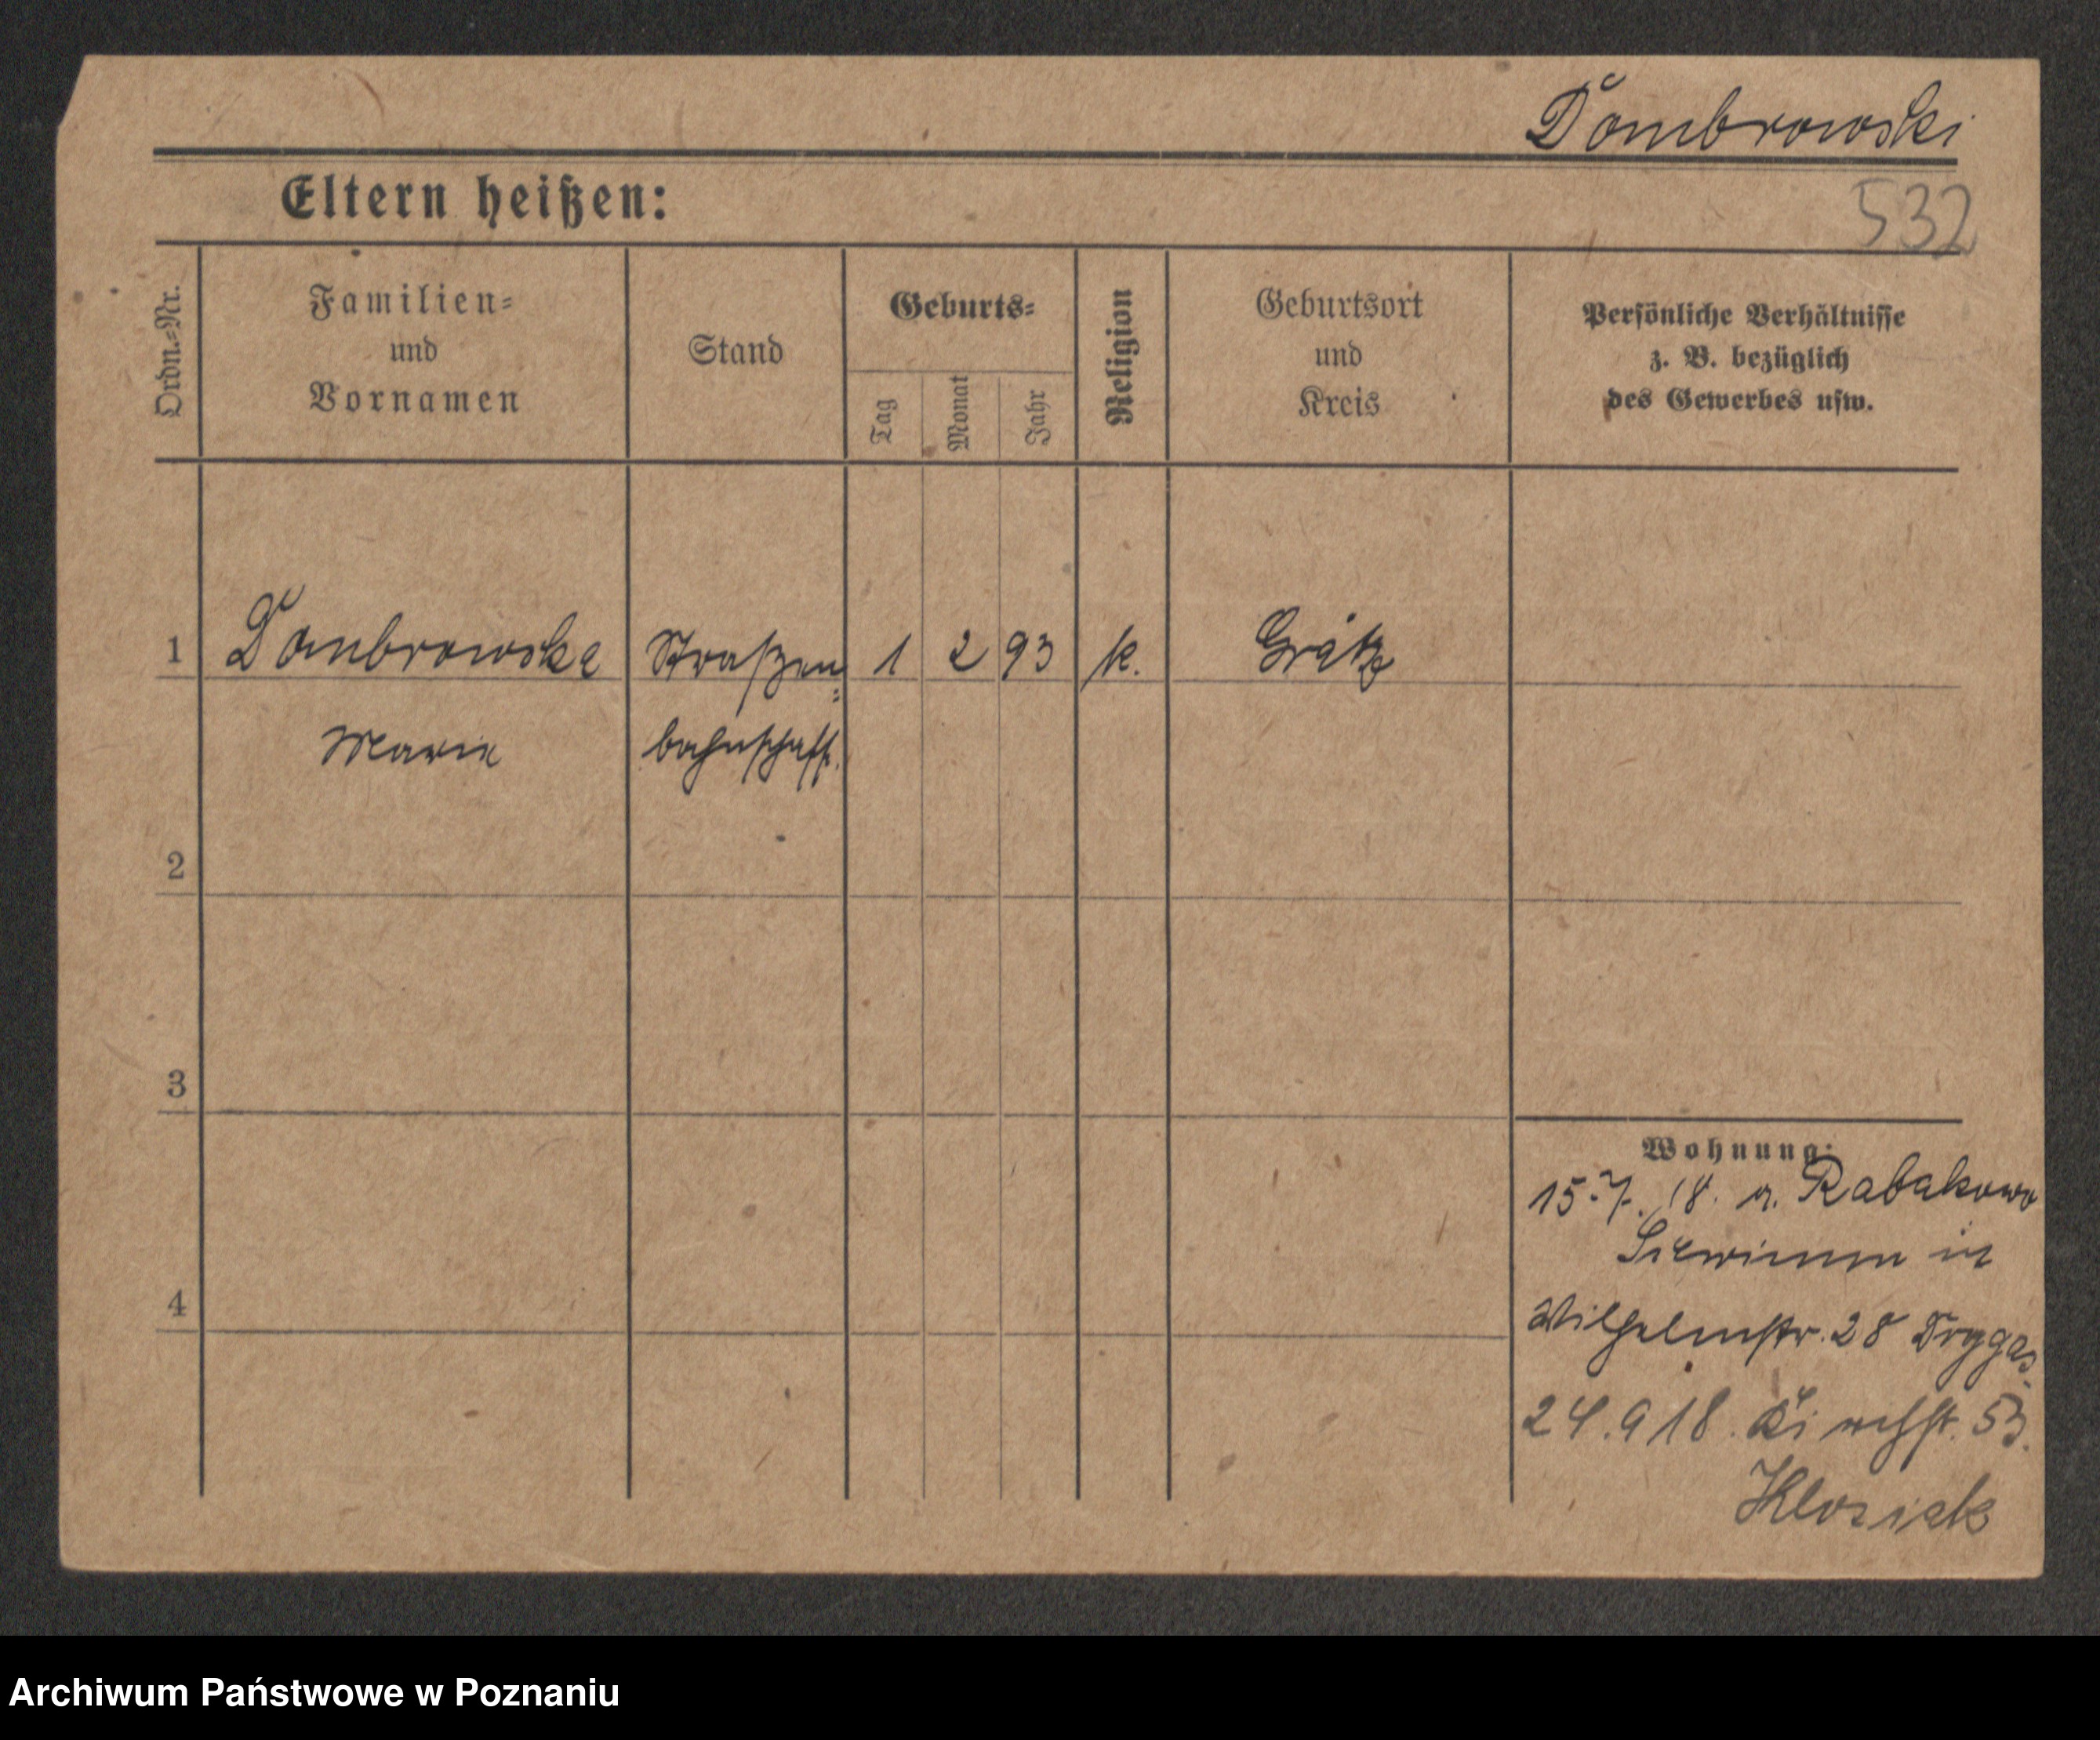 Dombrowski
Eltern heißen:
532
Ordn.-Nr.
Familien-
und
Vornamen
Stand
Geburts-
Tag
Monat
Jahr
Religion
Geburtsort
und
Kreis
Persönliche Verhältnisse
z. B. bezüglich
des Gewerbes usw.
1 Dombrowska Straßen= 1 2 93 k. Grätz
Marie bahnschaff.
2
3
4
Wohnung:
15.7.18. n. Rabakowo
in
Wilhelmstr. 28 Drygas
24.9 18. Kirchst. 53.
Klosiak
Archiwum Państwowe w Poznaniu